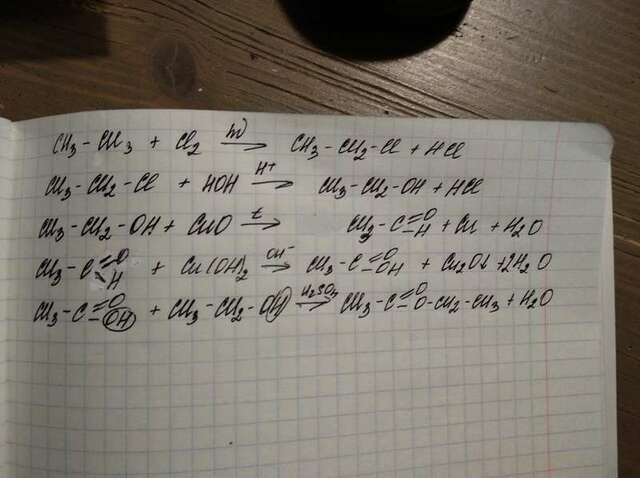 CH3 - CH3 + Cl2 hν → CH3 - CH2 - Cl + HCl
CH3 - CH2 - Cl + HOH H+ → CH3 - CH2 - OH + HCl
CH3 - CH2 - OH + CuO t → CH3 - C =O -H + Cu + H2O
CH3 - C =O -H + Cu(OH)2 OH- → CH3 - C =O -OH + Cu2O↓ + 2H2O
CH3 - C =O -OH + CH3 - CH2 - OH H2SO4 ⇌ CH3 - C =O -O - CH2 - CH3 + H2O